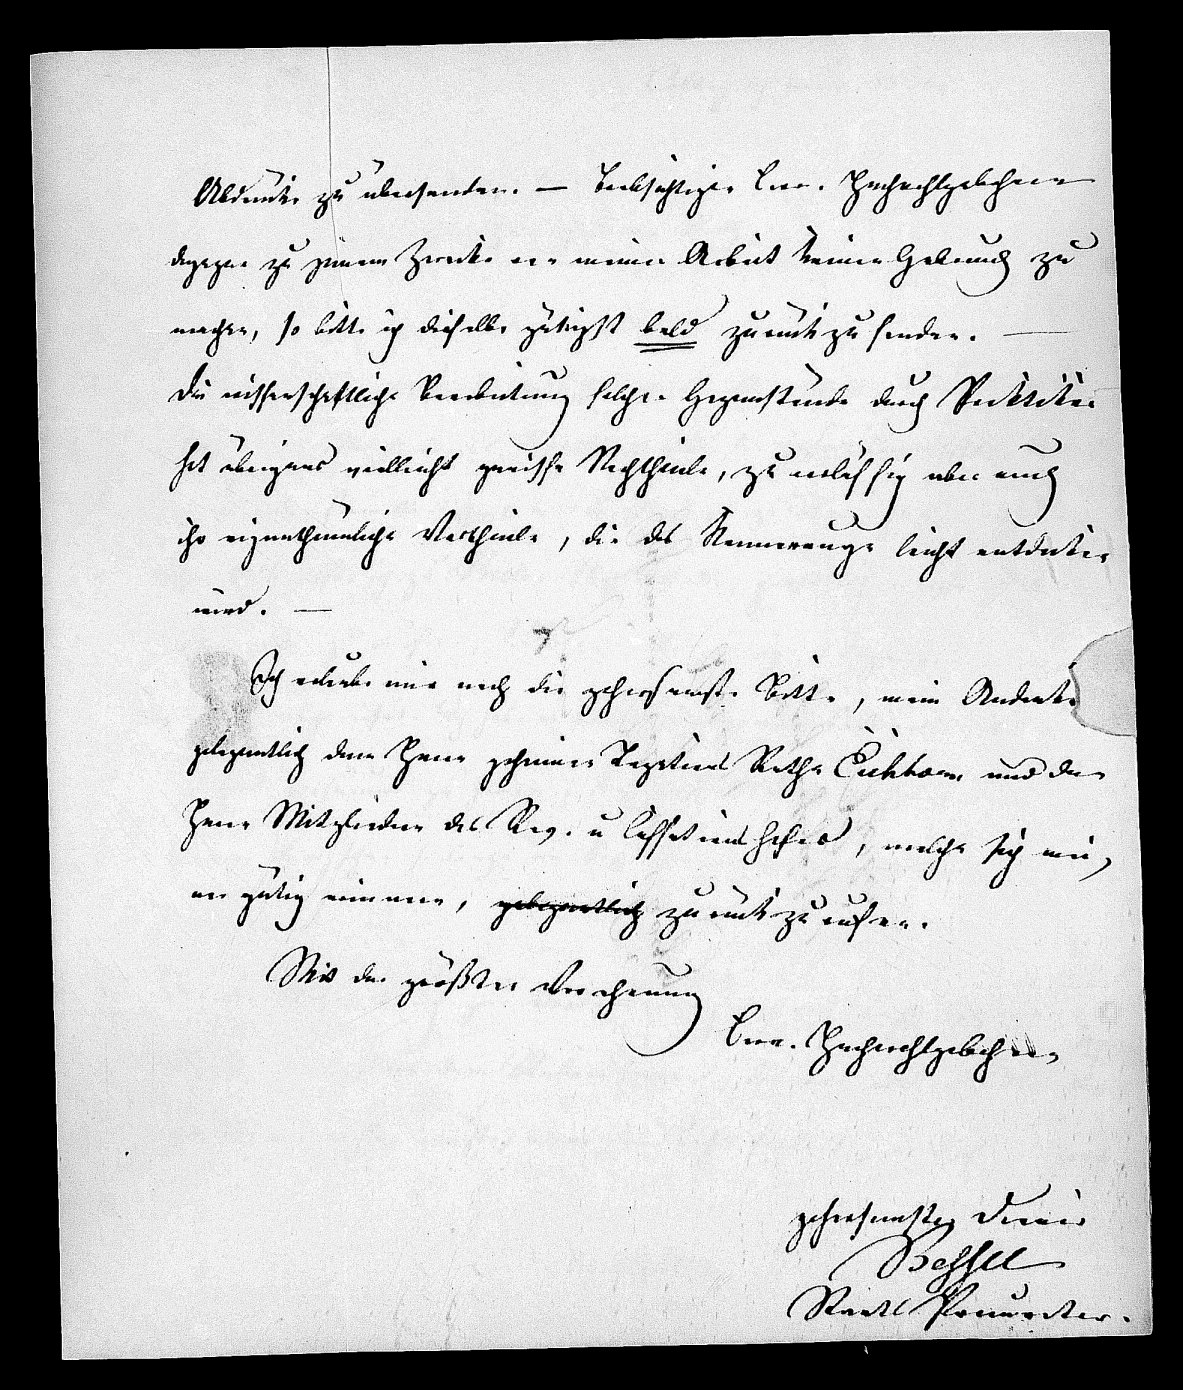 Abdrücke zu übersenden. — Beabsichtigen Ew. Hochwohlgeboren
dagegen zu jenem Zwecke von meiner Arbeit keinen Gebrauch zu
machen, so bitte ich dieselbe gütigst bald zurückzusenden. —
Die wissenschaftliche Bearbeitung solcher Gegenstände durch Praktiker
hat übrigens vielleicht gewisse Nachtheile, zuverlässig aber auch
ihre eigenthümliche Vortheile, die das Kennerauge leicht entdecken
wird. —
Ich erlaube mir noch die gehorsamste Bitte, mein Andenken
gelegentlich dem Herrn geheimen Legations Rathe Eichhorn und den
Herrn Mitgliedern des Rev. u Cassationshofes, welche sich mei,
ner gütig erinnern, gelegentlich zurückzurufen.
Mit der größten Verehrung
Ew. Hochwohlgeboren
gehorsamster Diener
Bessel
Staats Procurator.